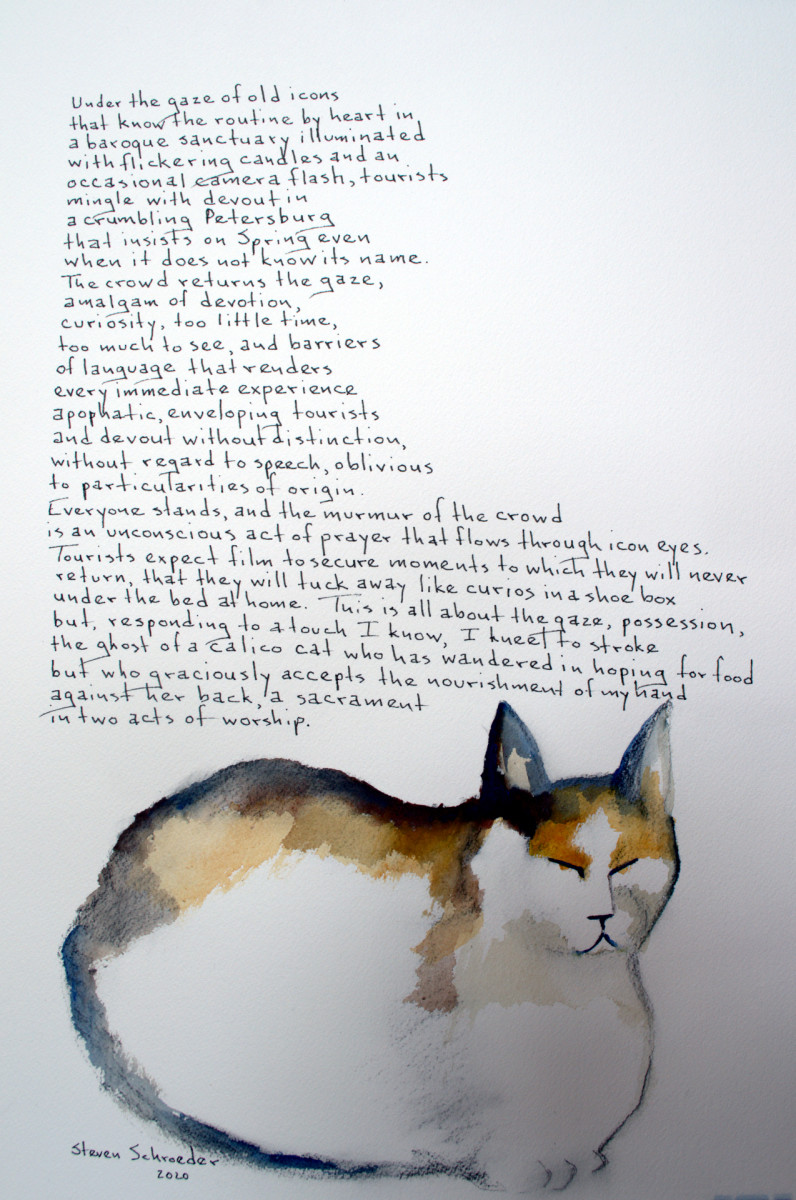 Under the gaze of old icons
that know the routine by heart in
a baroque sanctuary illuminated
with flickering candles and an
occasional camera flash, tourists
mingle with devout in
a crumbling Petersburg
that insists on Spring even
when it does not know its name.
The crowd returns the gaze,
amalgam of devotion,
curiosity, too little time,
too much to see, and barriers
of language that renders
every immediate experience
apophatic, enveloping tourists
and devout without distinction,
without regard to speech, oblivious
to particularities of origin.
Everyone stands, and the murmur of the crowd
is an unconscious act of prayer that flows through icon eyes.
Tourists expect film to secure moments to which they will never
return, that they will tuck away like curios in a shoe box
under the bed at home. This is all about the gaze, possession,
but, responding to a touch I know, I kneel to stroke
the ghost of a calico cat who has wandered in hoping for food
but who graciously accepts the nourishment of my hand
against her back, a sacrament
in two acts of worship.
Steven Schroeder
2020